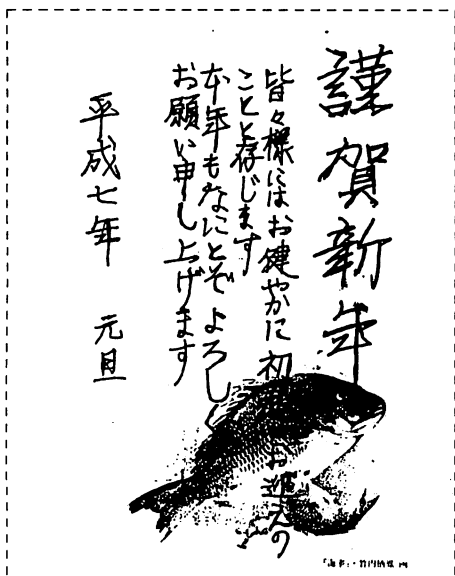 謹賀新年
皆々様にはお健やかに初 お迎えの
ことと存じます
本年もなにとぞよろしく
お願い申し上げます
平成七年 元旦